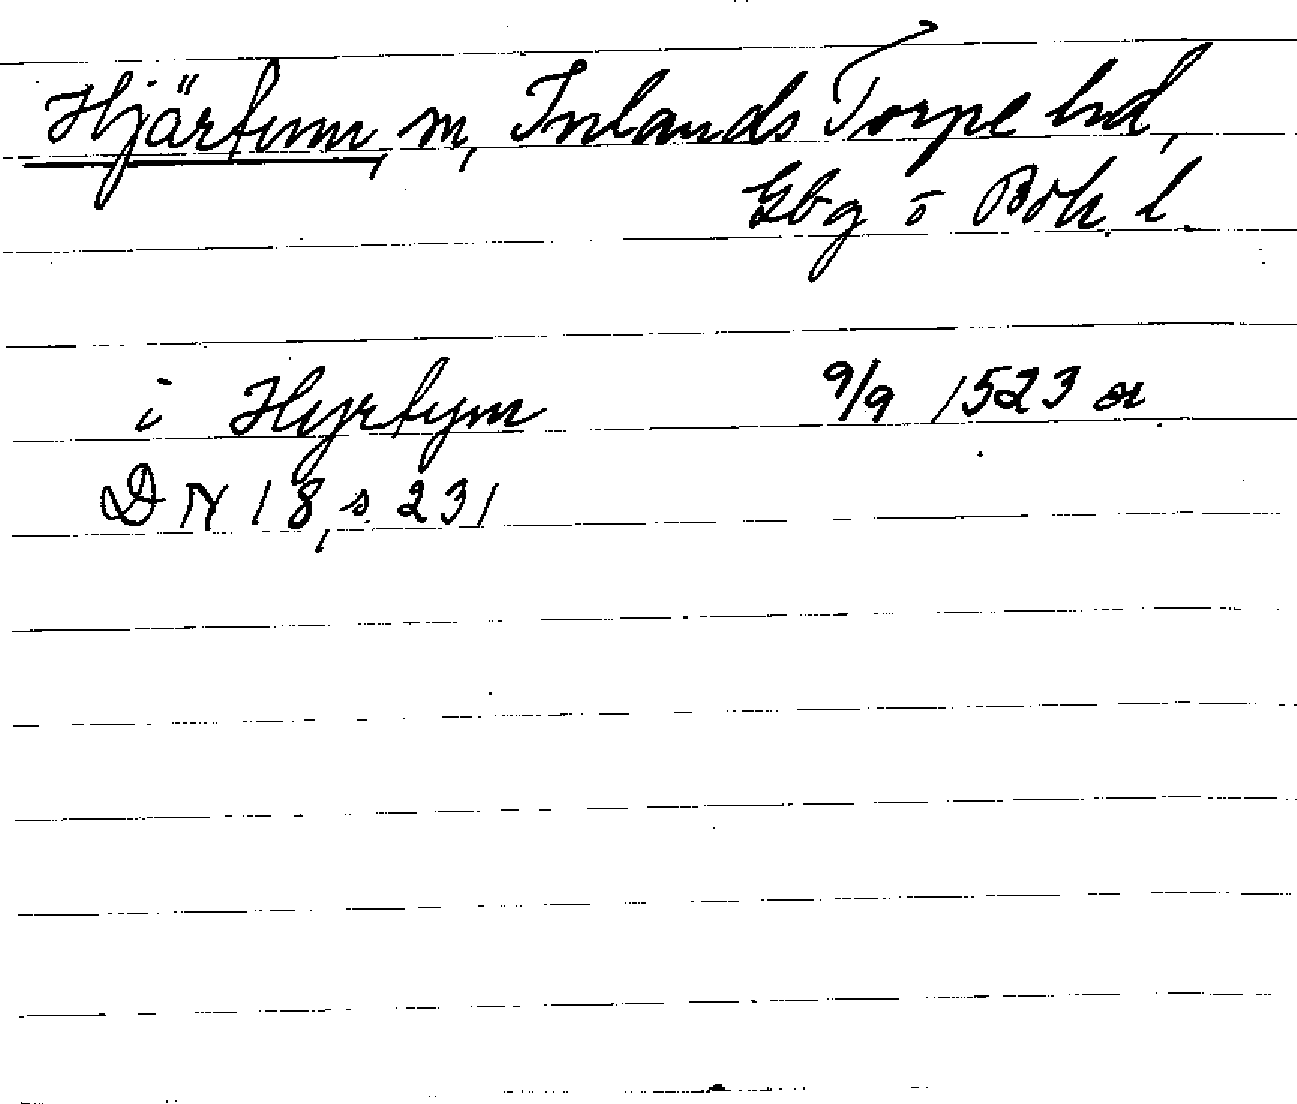 Hjärtum, sn, Inlands Torpe hd,
Gbg o Boh. l.
i Hyrtym 9/9 1523 or
DN 18, s. 231